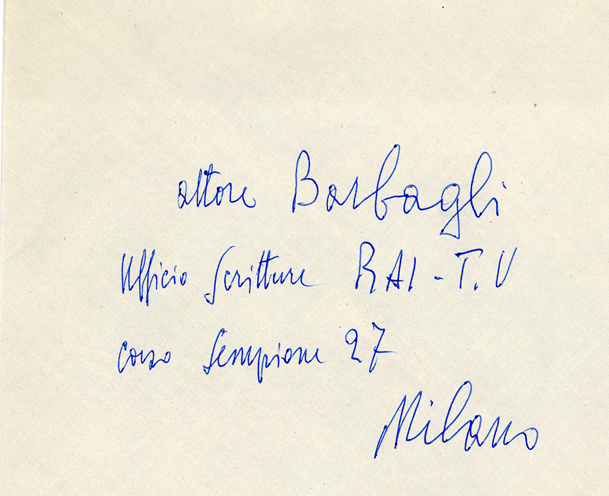 attore Barbagli
Ufficio Scritture RAI-T.V
Corso Sempione 27
Milano